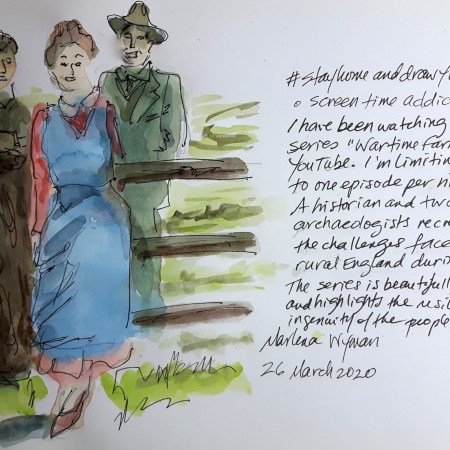 #stayhomeanddraw
o screen time addic
I have been watching
series "Wartime Far
YouTube. I'm limitin
to one episode per ni
A historian and two
archaeologists recre
the challenges face
rural England duri
The series is beautifull
and highlights the resil
ingenuity of the people
Marlena Wyman
26 March 2020